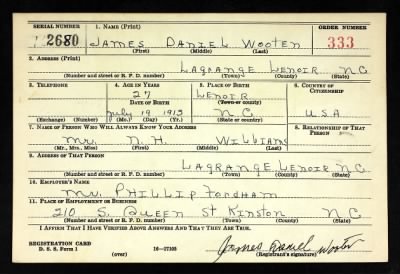 SERIAL NUMBER 1. NAME (Print) ORDER NUMBER
2680 JAMES DANIEL WOOTEN 333
(First) (Middle) (Last)
2. ADDRESS (Print)
LAGRANGE LENOIR N.C.
(Number and street or R. F. D. number) (Town) (County) (State)
3. TELEPHONE 4. AGE IN YEARS 5. PLACE OF BIRTH 6. COUNTRY OF CITIZENSHIP
27 LENOIR
DATE OF BIRTH (Town or county)
July 19 1913 NC USA
(Exchange) (Number) (Mo.) (Day) (Yr.) (State or country)
7. NAME OF PERSON WHO WILL ALWAYS KNOW YOUR ADDRESS 8. RELATIONSHIP OF THAT PERSON
Mr. N. H. Williams
(Mr., Mrs., Miss) (First) (Middle) (Last)
9. ADDRESS OF THAT PERSON
LAGRANGE LENOIR N.C.
(Number and street or R. F. D. number) (Town) (County) (State)
10. EMPLOYER'S NAME
Mr. PHILLIP Fordham
11. PLACE OF EMPLOYMENT OR BUSINESS
210 S. Queen St Kinston NC
(Number and street or R. F. D. number) (Town) (County) (State)
I AFFIRM THAT I HAVE VERIFIED ABOVE ANSWERS AND THAT THEY ARE TRUE.
REGISTRATION CARD
D. S. S. Form 1 16—17105 James Daniel Wooten
(Registrant's signature)